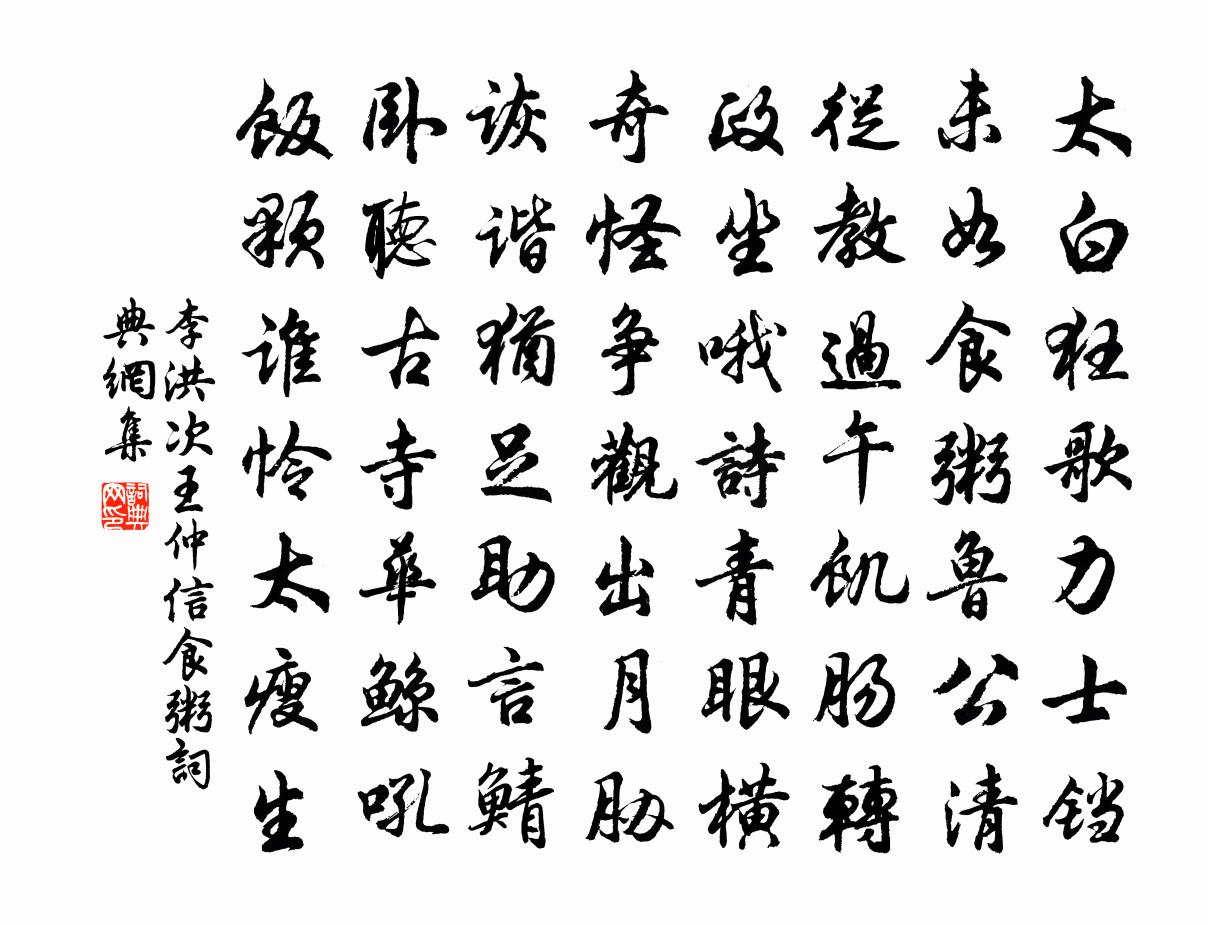 太白狂歌力士铛
未如食粥鲁公清
從教過午飢肠轉
政坐哦詩青眼橫
奇怪争觀出月胁
诙谐猶足助言鯖
卧聽古寺華鲸吼
飯顆谁怜太瘦生
李洪次王仲信食粥詞
典網集
詞典网印